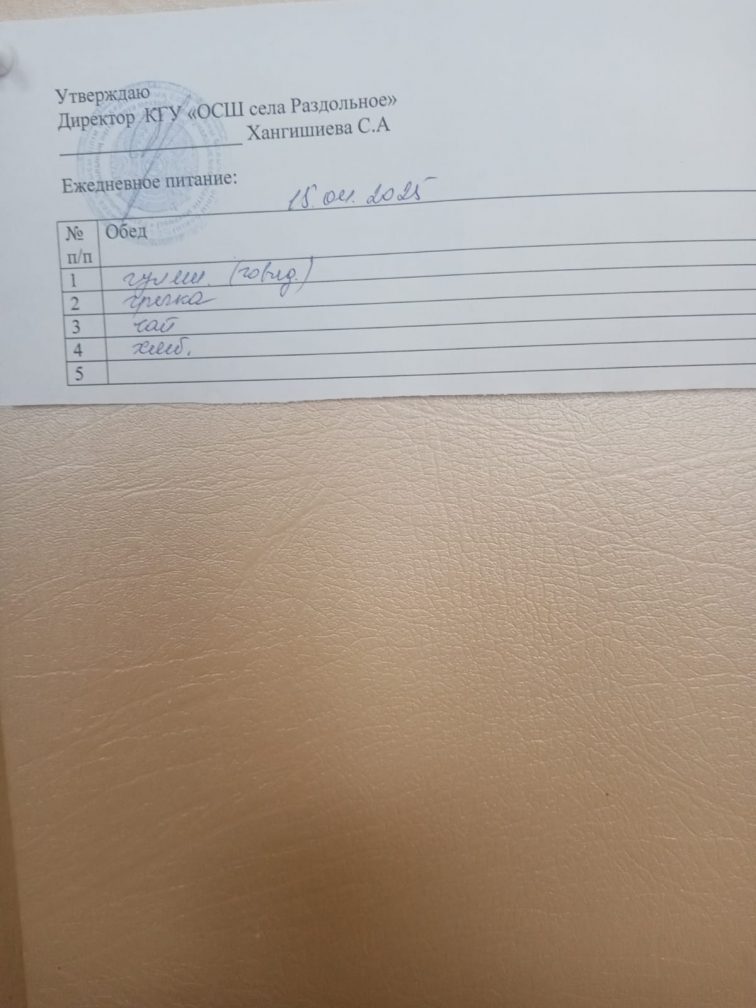 Утверждаю
Директор КГУ «ОСШ села Раздольное»
Хангишиева С.А
Ежедневное питание:
15.04.2025
№ п/п Обед
1 гуляш. (говяд.)
2 гречка
3 чай
4 хлеб.
5